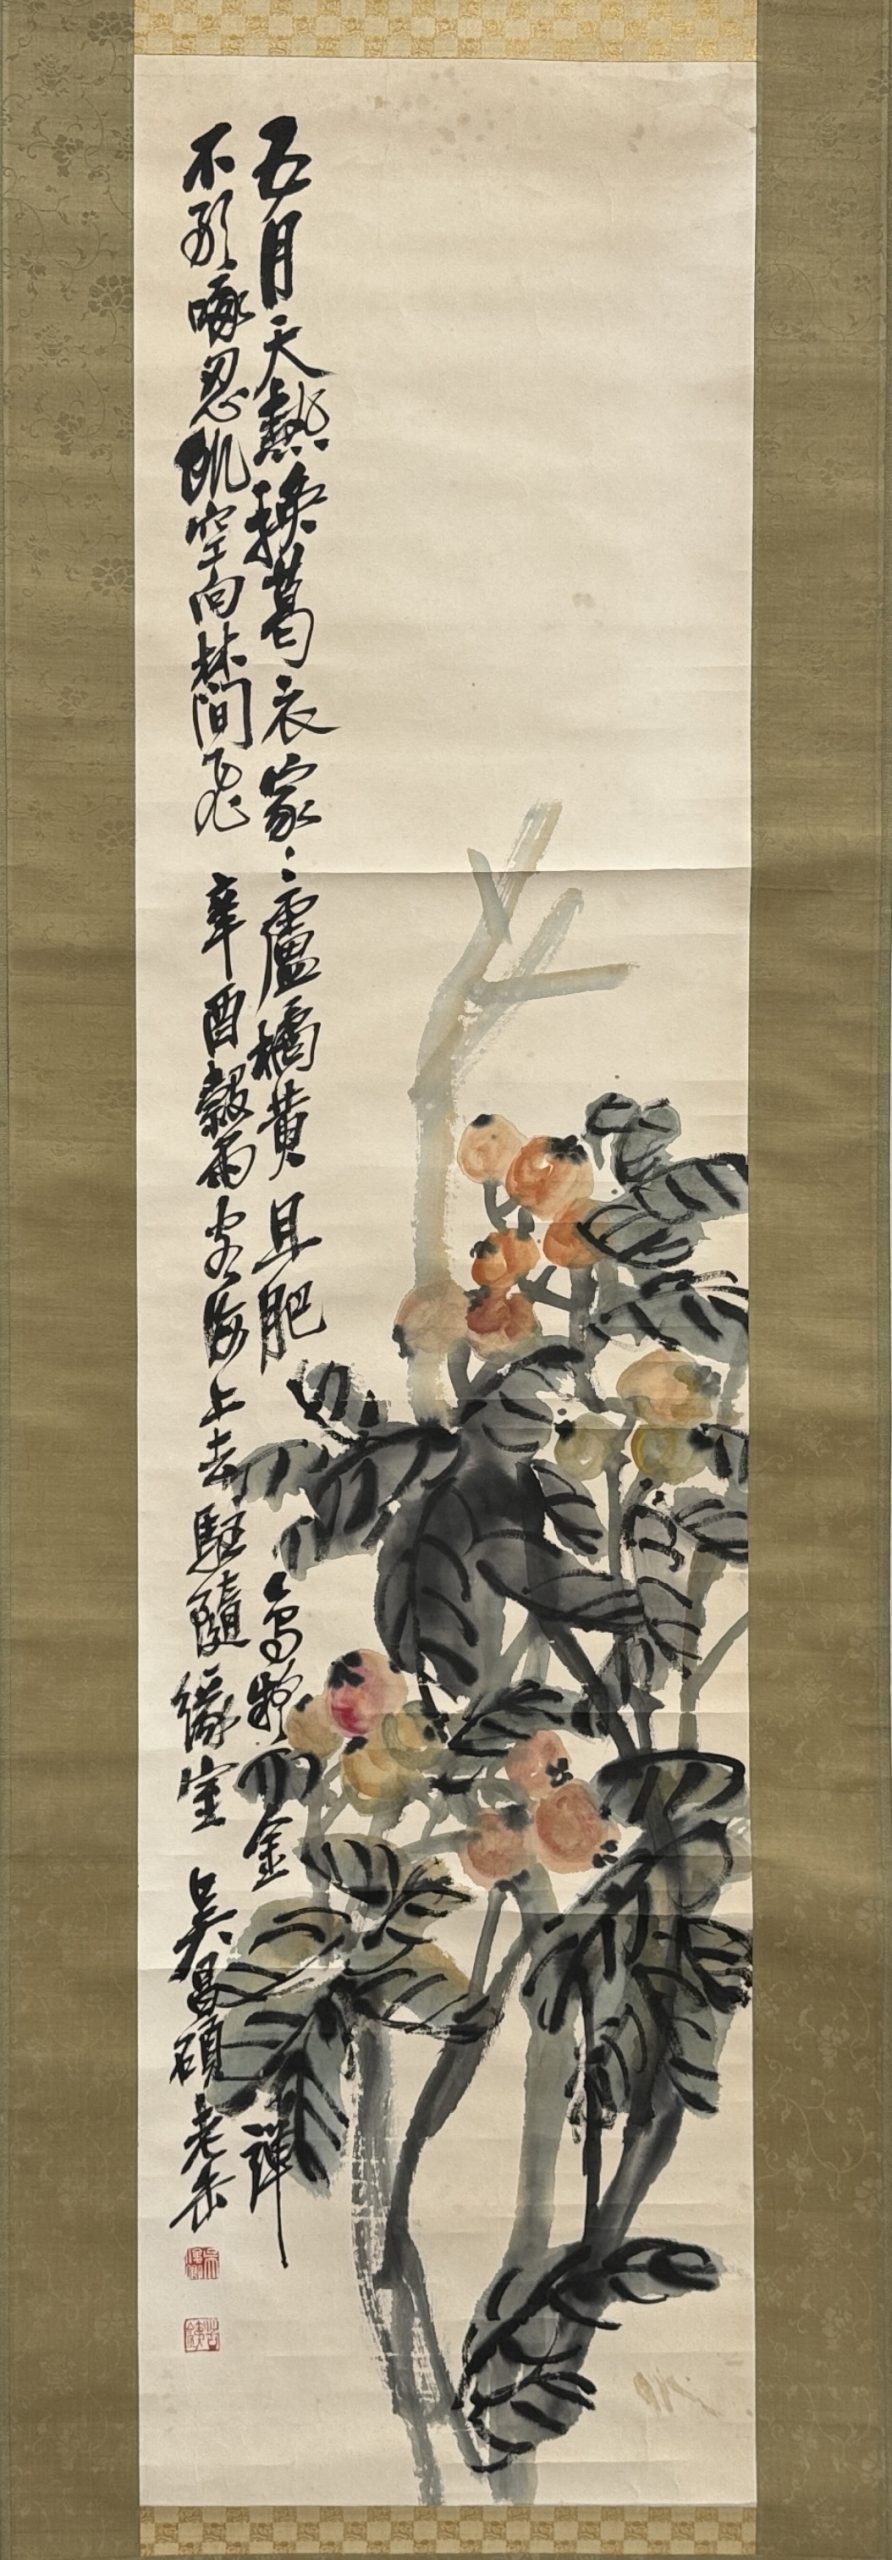 五月天熱換葛衣家：盧橘黃且肥鳥疑金彈
不敢啄忍飢空向林間飛 辛酉穀雨客海上去駐隨緣室 吳昌碩老缶